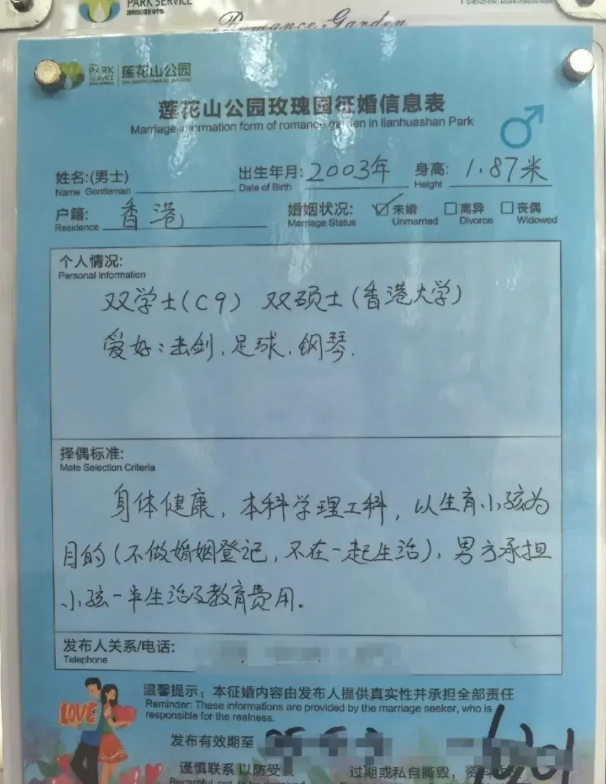 PARK SERVICE
Romance Garden
PARK SERVICE 莲花山公园
莲花山公园玫瑰园征婚信息表
Marriage information form of romance garden in lianhuashan Park
姓名:(男士) 出生年月: 2003年 身高: 1.87米
Name Gentleman Date of Birth Height
户籍: 香港 婚姻状况: ☑未婚 □离异 □丧偶
Residence Marriage Status Unmarried Divorce Widowed
个人情况:
Personal Information
双学士(C9) 双硕士(香港大学)
爱好:击剑.足球.钢琴.
择偶标准:
Mate Selection Criteria
身体健康,本科学理工科,以生育小孩为
目的(不做婚姻登记,不在一起生活),男方承担
小孩一半生活及教育费用。
发布人关系/电话:
Telephone
LOVE
温馨提示:本征婚内容由发布人提供真实性并承担全部责任
Reminder: These informations are provided by the marriage seeker, who is
responsible for the realness.
发布有效期至
谨慎联系以防受 过期或私自撕毁,